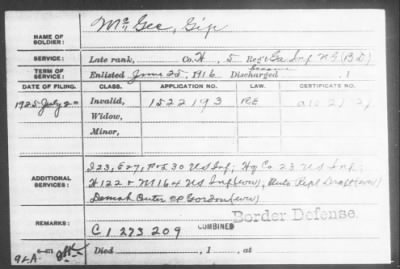 NAME OF SOLDIER: McGee, Gip
SERVICE: Late rank, Co. H, 5 Reg't Ga Inf N.G. (B.D.)
TERM OF SERVICE: Enlisted June 25, 1916 Discharged , 1
DATE OF FILING. CLASS. APPLICATION NO. LAW. CERTIFICATE NO.
1925-July 2 Invalid, 1522193
Widow,
Minor,
ADDITIONAL SERVICES: I23, E27, 30 US Inf; Hq Co 23 US Inf;
H122 + M164 US Inf (WW), Auto Repl Draft (WW)
Demob Center Cp Gordon (WW)
REMARKS: Border Defense
C 1 273 209 COMBINED
Died , 1 , at